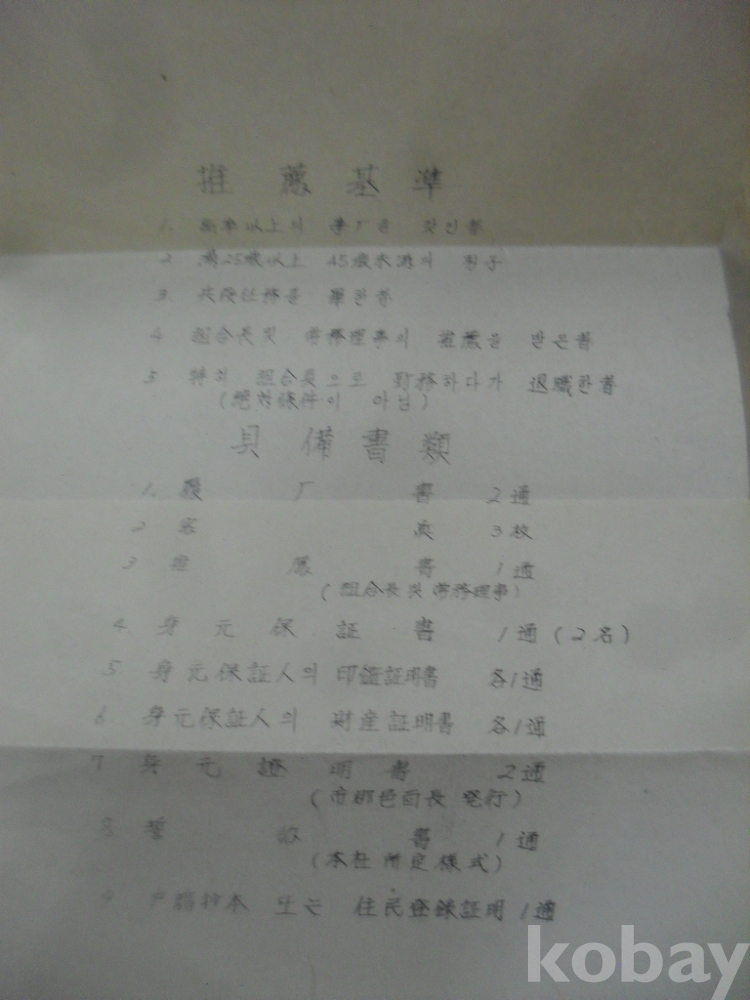 推薦基準
1. 高卒以上의 学厂을 갖인者
2 満25歲以上 45歲未満의 男子
3. 兵役任務을 畢한者
4 組合長 및 常務理事의 推薦을 받은者
5 特히 組合員으로 勤務하다가 退職한者
(絶対條件이 아님)
具備書類
1. 履厂書 2通
2 寫眞 3枚
3 推薦書 1通
(組合長 및 常務理事)
4 身元保証書 1通 (2名)
5 身元保証人의 印鑑証明書 各1通
6 身元保証人의 財産証明書 各1通
7 身元證明書 2通
(市郡邑面長 発行)
8 誓約書 1通
(本社 所定様式)
9 戸籍抄本 또는 住民登録証明 1通
kobay